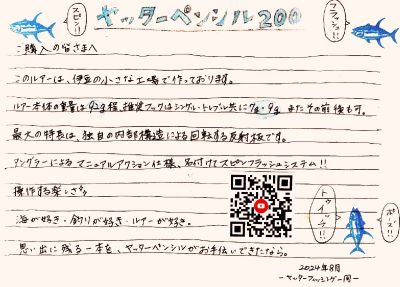 スピン!!
ヤッターペンシル200
フラッシュ!!
ご購入の皆さまへ
このルアーは、伊豆の小さな工場で作っております。
ルアー本体の重量は92g程、推奨フックはシングル・トレブル共に7g〜9g またその前後も可。
最大の特長は、独自の内部構造による回転する反射板です。
アングラーによるマニュアルアクション仕様、名付けてスピンフラッシュシステム!!
操作する楽しさ
海が好き・釣りが好き・ルアーが好き。
トゥイッチ!!
ポーズ!!
思い出に残る一本を、ヤッターペンシルがお手伝いできたなら。
2024年8月
−ヤッターフィッシング−